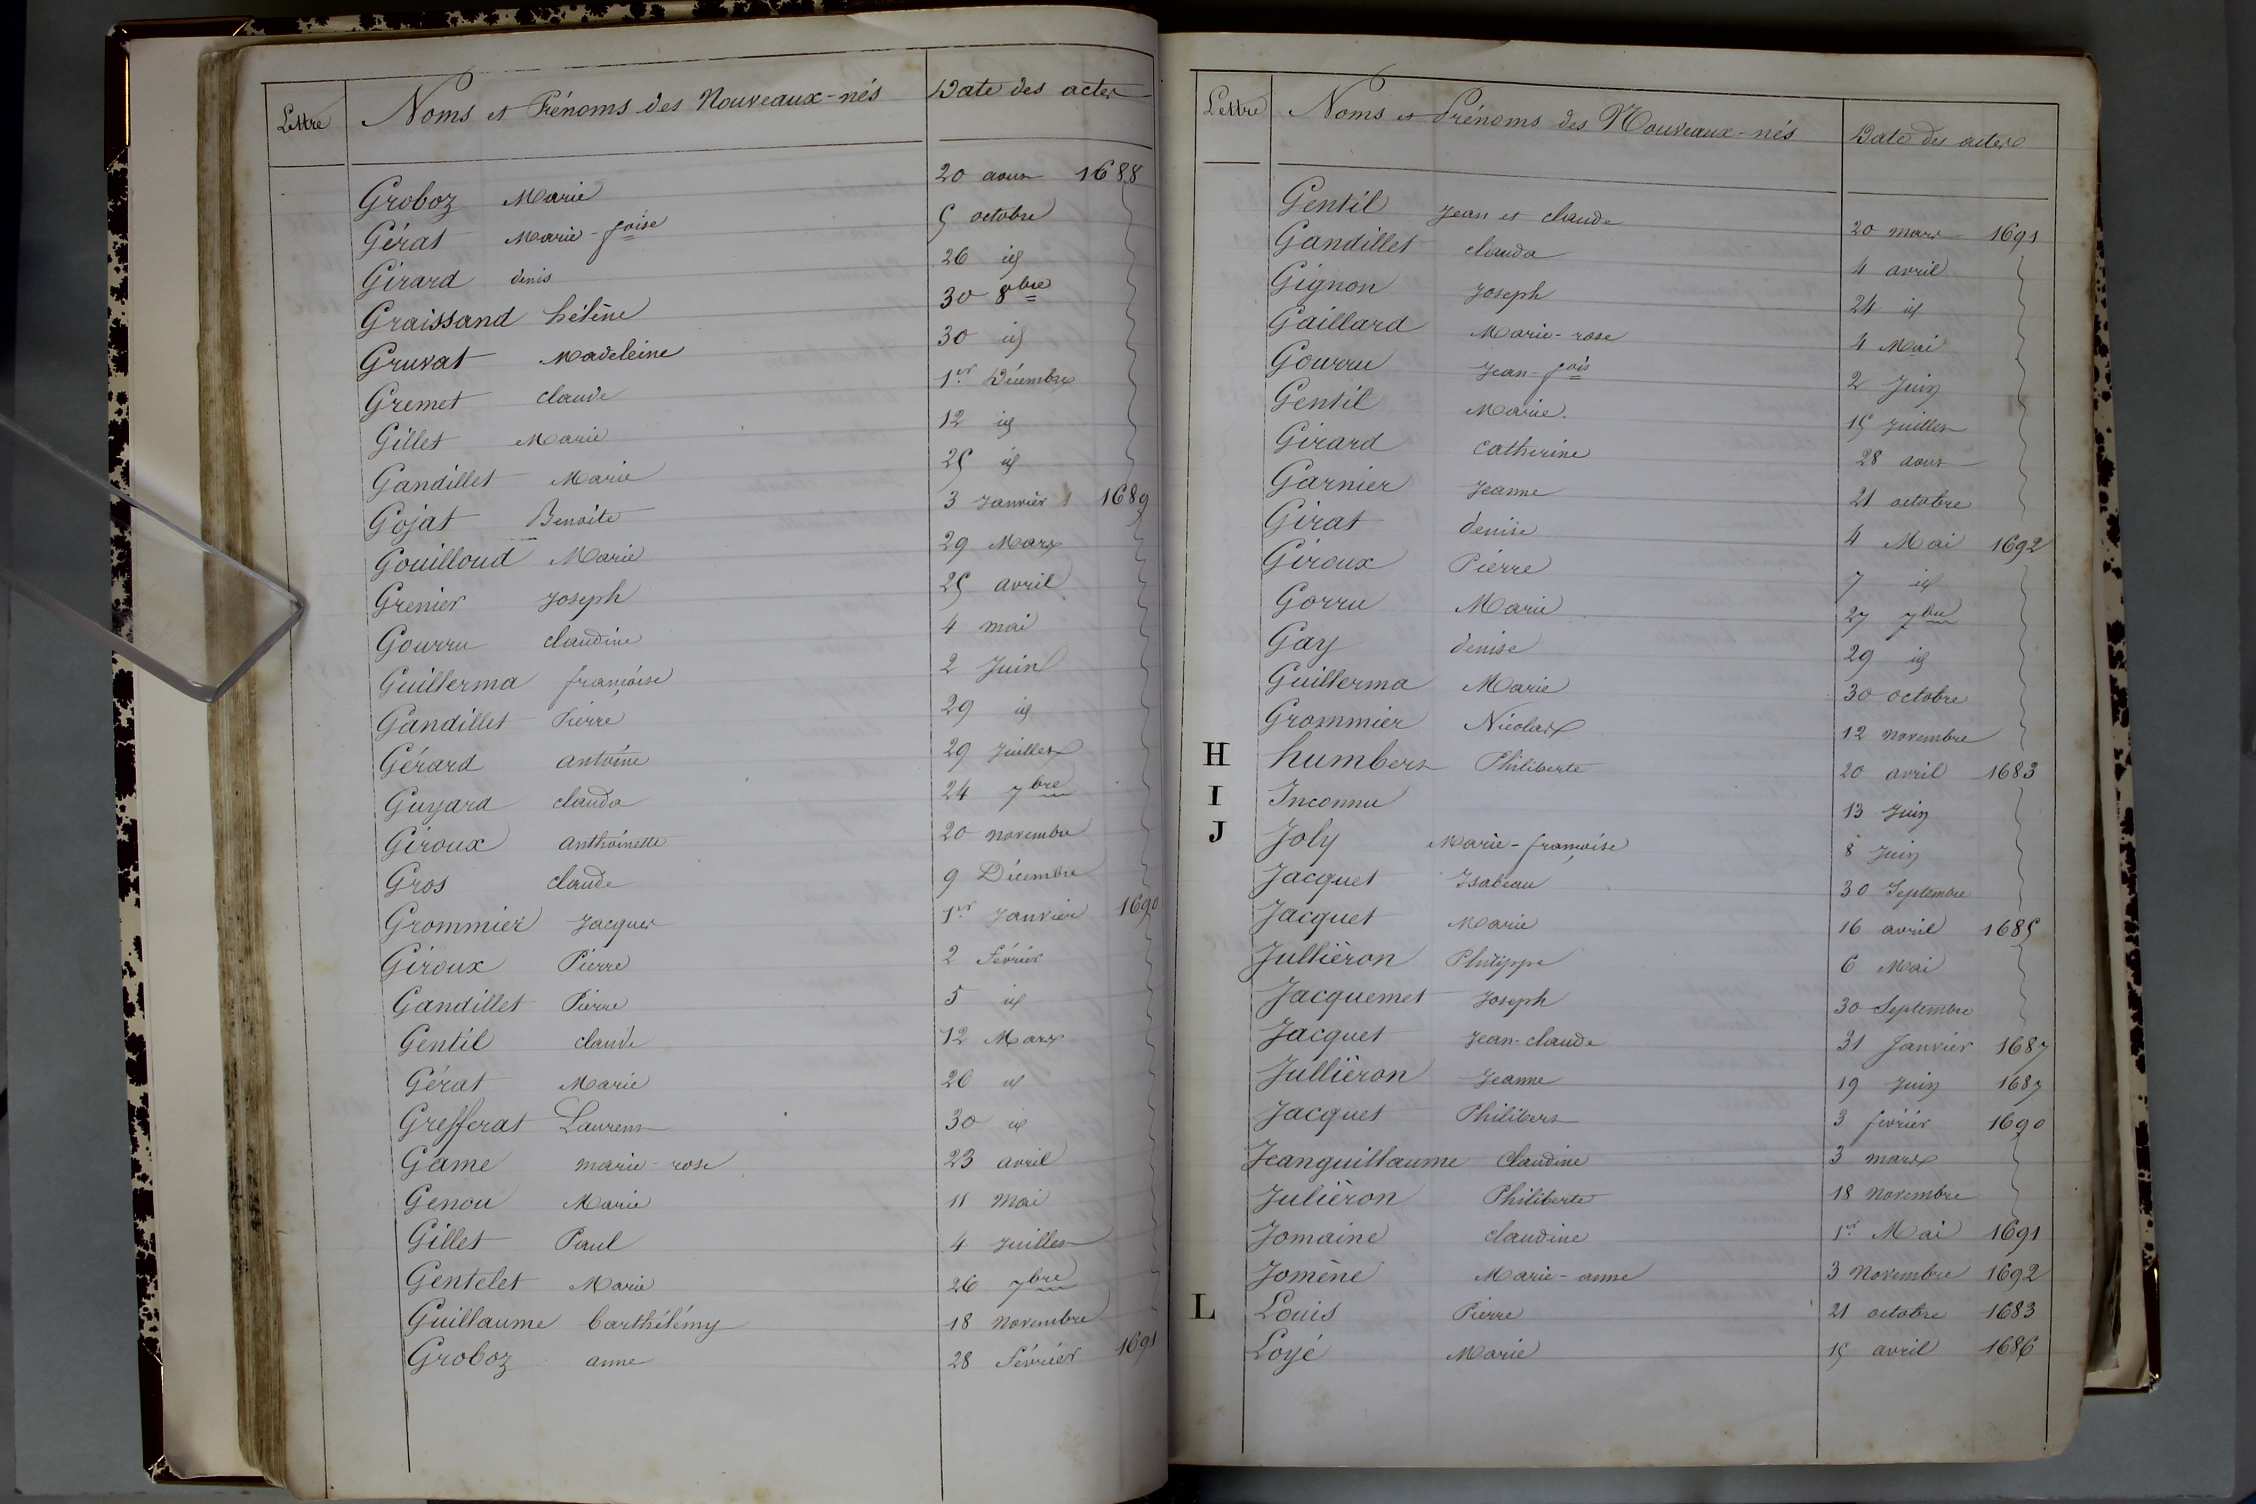 Lettre Noms et Prénoms des Nouveaux-nés Date des actes
Groboz Marie 20 aout 1688
Gérat Marie-foise 5 octobre
Girard denis 26 id
Graissand hélène 30 8bre
Gruvat Madeleine 30 id
Gremet claude 1er Décembre
Gillet Marie 12 id
Gandillet Marie 25 id
Gojat Benoite 3 Janvier 1689
Gouilloud Marie 29 Mars
Grenier Joseph 25 avril
Gourru claudine 4 mai
Guillerma françoise 2 Juin
Gandillet Pierre 29 id
Gérard antoine 29 Juillet
Guyard clauda 24 7bre
Giroux anthoinette 20 novembre
Gros claude 9 Décembre
Grommier Jacques 1er Janvier 1690
Giroux Pierre 2 Février
Gandillet Pierre 5 id
Gentil claude 12 Mars
Gérat Marie 20 id
Grefferat Laurent 30 id
Game marie-rose 23 avril
Genou Marie 11 Mai
Gillet Paul 4 Juillet
Gentelet Marie 26 7bre
Guillaume barthélémy 18 Novembre
Groboz anne 28 Février 1691
Lettre Noms et Prénoms des Nouveaux-nés Date des actes
Gentil Jean et claude 20 mars 1691
Gandillet clauda 4 avril
Gignon Joseph 24 id
Gaillard Marie-rose 4 Mai
Gourru Jean-fois 2 Juin
Gentil Marie 15 Juillet
Girard catherine 28 aout
Garnier Jeanne 21 octobre
Girat denise 4 Mai 1692
Giroux Pierre 7 id
Gorru Marie 27 7bre
Gay denise 29 id
Guillerma Marie 30 octobre
Grommier Nicolas 12 novembre
H humbert Philiberte 20 avril 1683
I Inconnu 13 Juin
J Joly Marie-françoise 8 Juin
Jacquet Isabeau 30 Septembre
Jacquet Marie 16 avril 1685
Jullièron Philippe 6 Mai
Jacquemet Joseph 30 Septembre
Jacquet Jean-claude 31 Janvier 1687
Jullièron Jeanne 19 Juin 1687
Jacquet Philibert 3 février 1690
Jeanguillaume Claudine 3 mars
Julièron Philiberte 18 novembre
Jomaine claudine 1er Mai 1691
Jomène Marie-anne 3 Novembre 1692
L Louis Pierre 21 octobre 1683
Loyé Marie 15 avril 1686